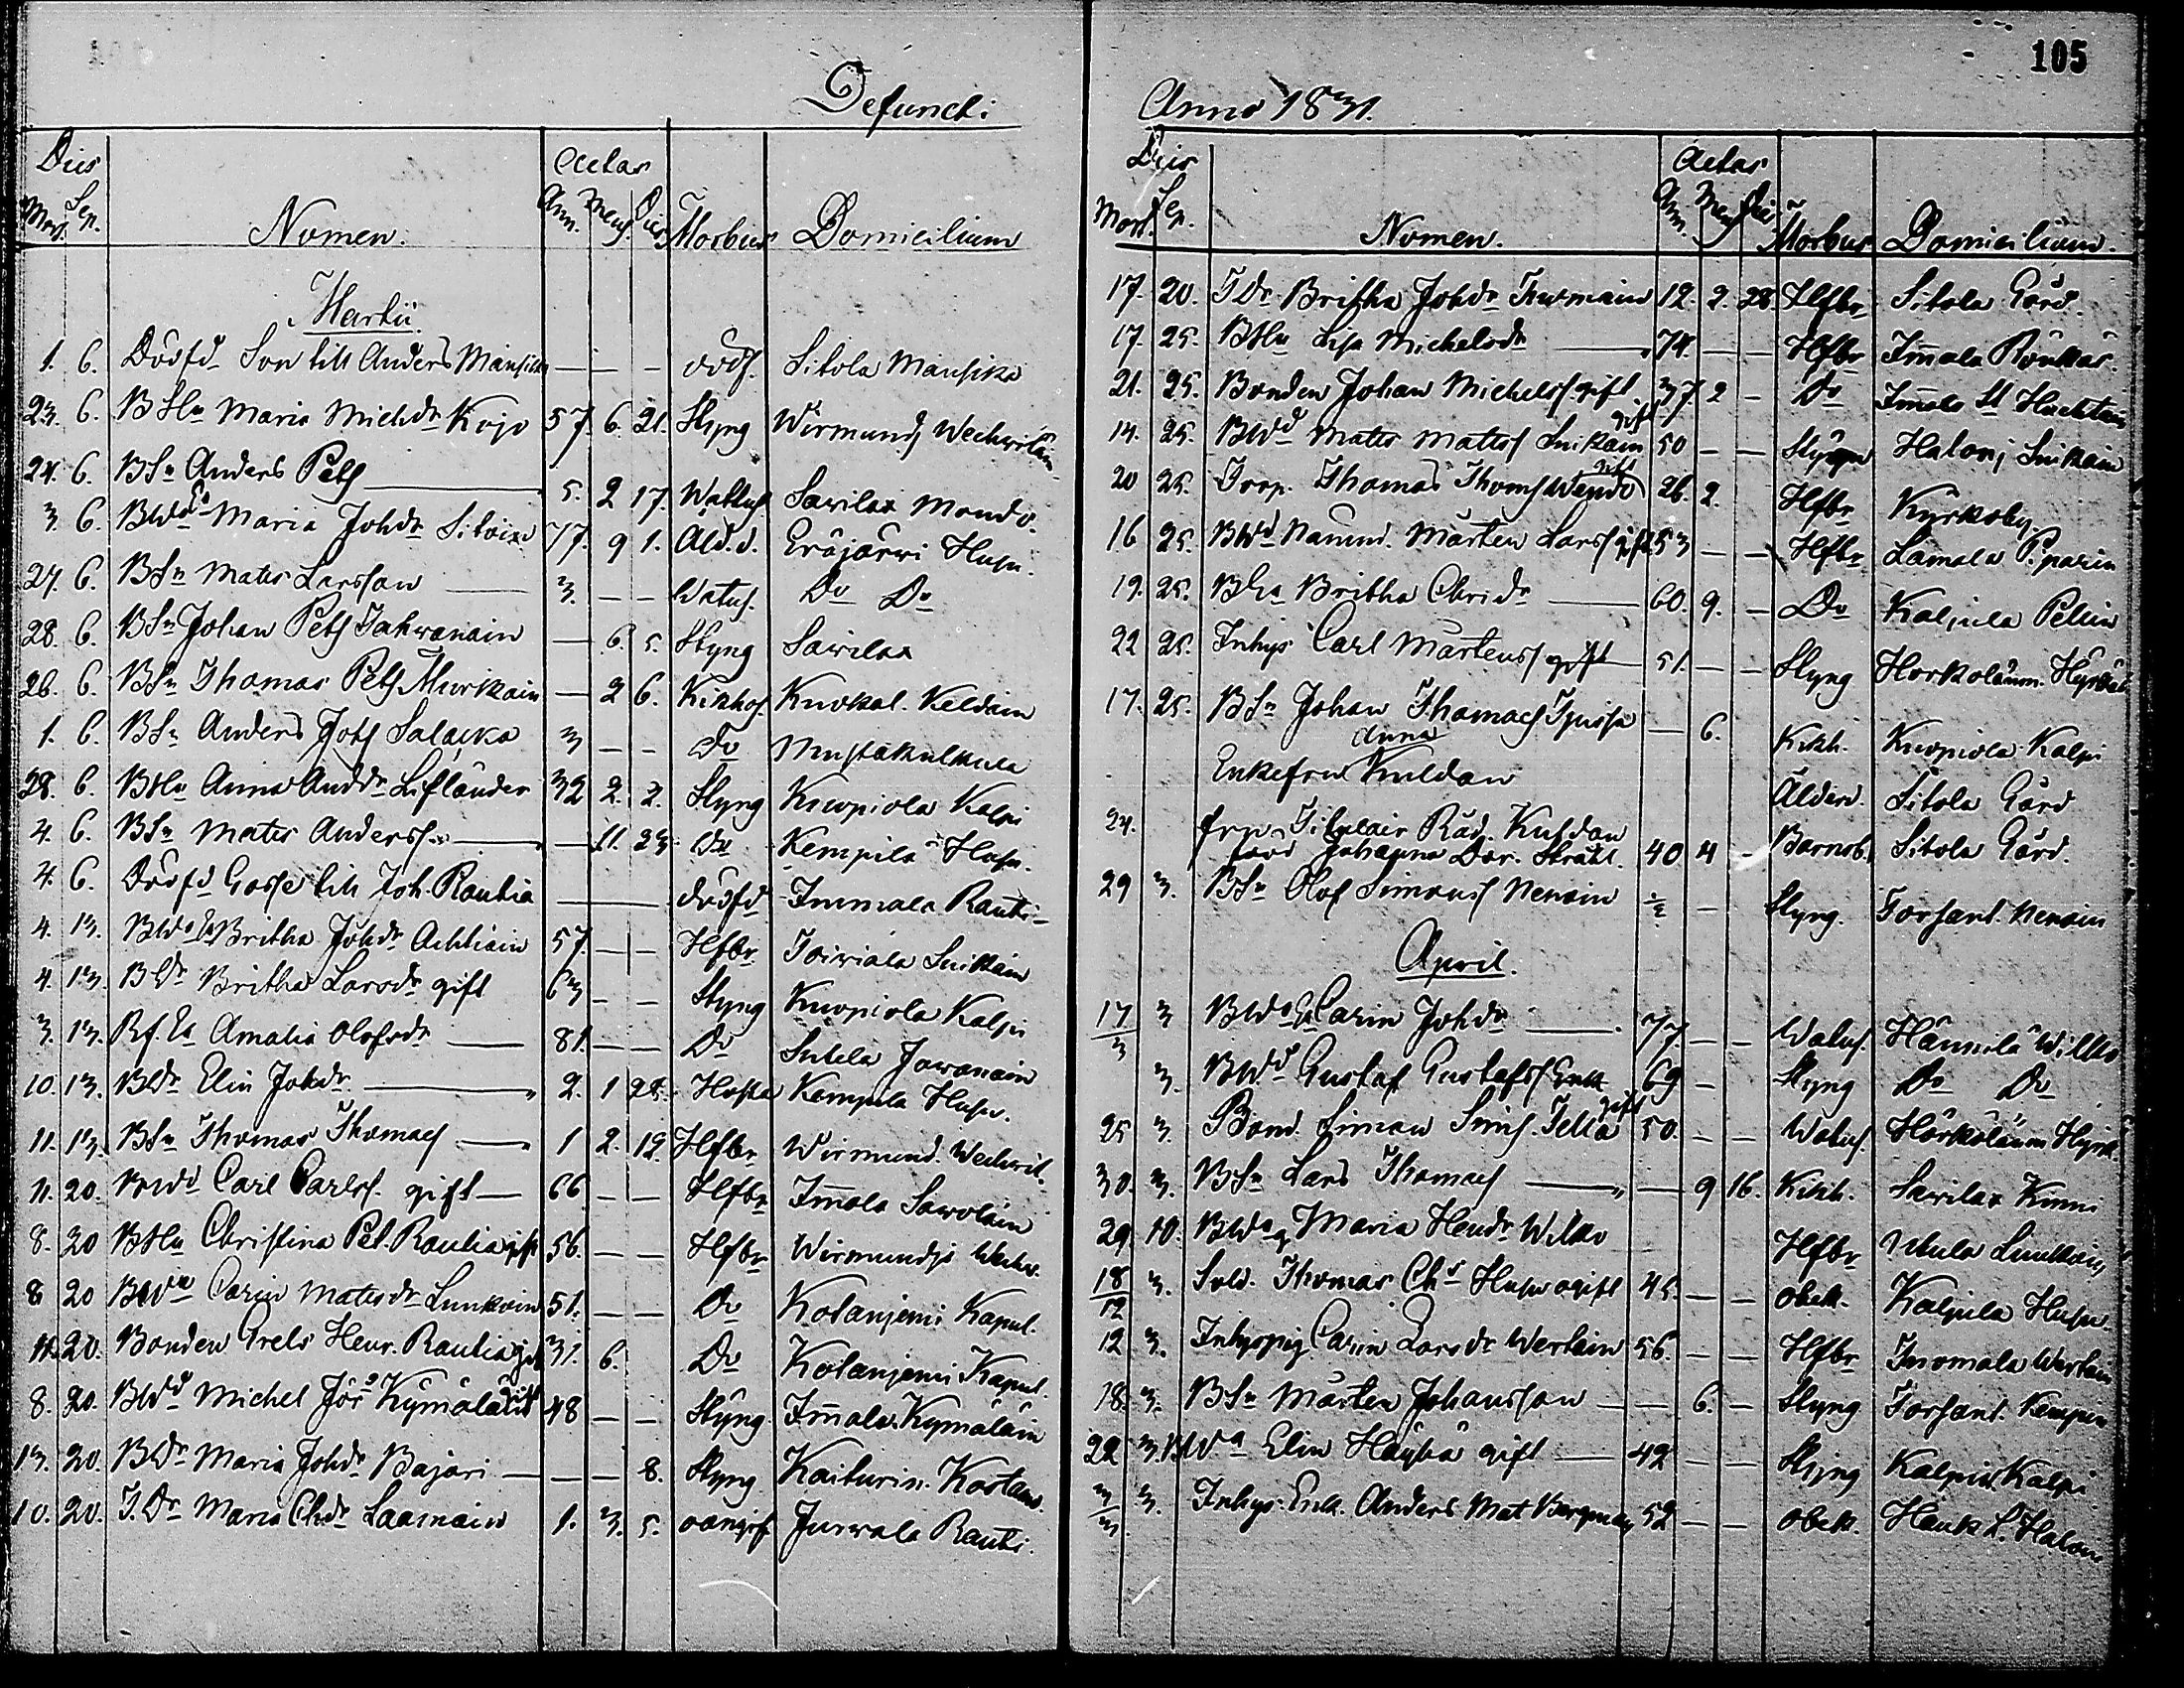 105
Defuncti
Anno 1831.
Dies
Mort. Sep.
Nomen.
Aetas
Ann. Mens. Dies
Morbus
Domicilium
Martii.
1. 6. Dödfd Son till Anders Mansikka — — — dödf. Sitola Mansika
23. 6. BHu Maria Michdr Kojo 57. 6. 21. Styng Wirmund
24. 6. BSn Anders Pets — 5. 2 17. Sawilax Mondo.
3. 6. Maria Johdr 77. 9 1. Ald.d. Eräjärwi Husu.
27. 6. BSn Mats Larsson — 3. — — Watus. Do Do
28. 6. BSn Johan Pets Tahwanain — 6. 5. Styng Sawilax
26. 6. BSn Thomas Pets Murkain — 2 6. Kikhos. Kuokal. Keldain
1. 6. BSn Anders Salacka 3 — — Do Mustakulkula
28. 6. BHu Anna Anddr Lifländer 32 2. 2. Styng Kuopiola Kalpi
4. 6. BSn Mats Anderss. — — 11. 23 Do Kempilä Husu.
4. 6. Dödfd Gosse till Joh. Rautia — dödfd Immala Rauti-
4. 13. Britha Johdr Achtiain 57. — — Hfbr Toiviala Suikain
4. 13. BDr Britha Larsdr gift 63 — — Styng Kuopiola Kalpi
3. 13. Rf. Ea Amalia Olofsdr — 81. — — Do Sutela Jowanain
10. 13. BDr Elin Johdr — 2. 1 24. Hosta Kempila Husu.
11. 13. BSn Thomas Thomas — 1 2. 19. Hfbr Wirmund. Wechvil.
11. 20. BWd Carl Carlss. gift — 66 — — Hfbr Im̅ola Sawolain
8. 20 BHu Christina Pet. Rautia gift 56. — — Hfbr Wirmundji
8 20 Carin Matsdr Lunkain 51. — — Do Kotanjemi Kapul.
11. 20. Bonden Grels Henr. Rautia gift 31. 6. Do Kotanjemi Kapul.
8. 20. BWd Michel Jör Kymäläi gift 48 — — Styng Im̅ola Kymäläin
13. 20. BDr Maria Johdr Bajari — — — 8. Styng Kaiturin. Kostam.
10. 20. I.Dr Maria Chdr Laamain 1. 3. 5. oangif Jurwala Rauti.
Dies
Mort. Sep.
Nomen.
Aetas
Ann. Mens Dies
Morbus
Domicilium.
17. 20. TDr Britha Johdr Turmain 12. 2. 28. Hfbr Sitola Gård.
17. 25. BHu Lisa Michelsdr — 74. — — Hfbr Im̅ola Rönkäs.
21. 25. Bonden Johan Michelss gift 37 2 — Do Im̅ola
14. 25. BWd Mats Matss Suikain gift 50 — — Styng Halonj Suikain
20 25. Torp. Thomas Thoms gift 26. 2. Hfbr Kyrkoby.
16 25. BWd Mårten Larss gift 53 — — Hfbr Lamala Piparin
19. 25. Britha Chrsdr — 60. 9. — Do Kaljula Pellin
22 25. Inhys Carl Mårtenss gift — 51. — — Styng
17. 25. BSn Johan Thomass — 6. Kikh. Kuopiola Kalpi
Enkefru Anna Kuldan Ålderd. Sitola Gård
24. fru Titulair Råd. Kuldan
född Johanna Dor. Stråhl. 40 4 — Barnsb. Sitola Gård.
29 3. BSn Olof Simonss Nenoin ½ — Styng. Torsant. Nenoin
April.
17/3 3 Carin Johdr — 77 — — Watus. Hännilä Wilko
3. BWd Gustaf Gustafss Enk 69 — Styng Do Do
25 3. Bond. Simon Sims. Tella gift 50. — — Watus. Horkoläinm Hyrk.
30. 3. BSn Lars Thomas — — 9 16. Kikh. Sawilax Kinni
29 10. Maria Hendr Wilko Hfbr Utula
18/12 3. Sold. Thomas Chs Husu ogift 45. — — obek. Kaljula Husu.
12 3. Inhyspig. Carin Larsdr Wertain 56. — — Hfbr Inomala Wertain
18. 3. BSn Mårten Johansson — — 6. — Styng Torsant. Kempin
22 3. Elin Häyhä gift — 42 — — Styng Kalpin. Kalpi
3/3. 3. Inhys. Enk. Anders Mat Bergman 52 — — obek. Hauk L. Halon